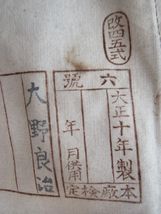 改四五式
六號
大正十年製
年月備用
本廠検定
大野良治